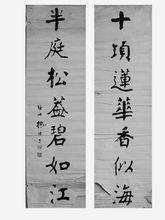 十頃蓮華香似海
半庭松蓋碧如江